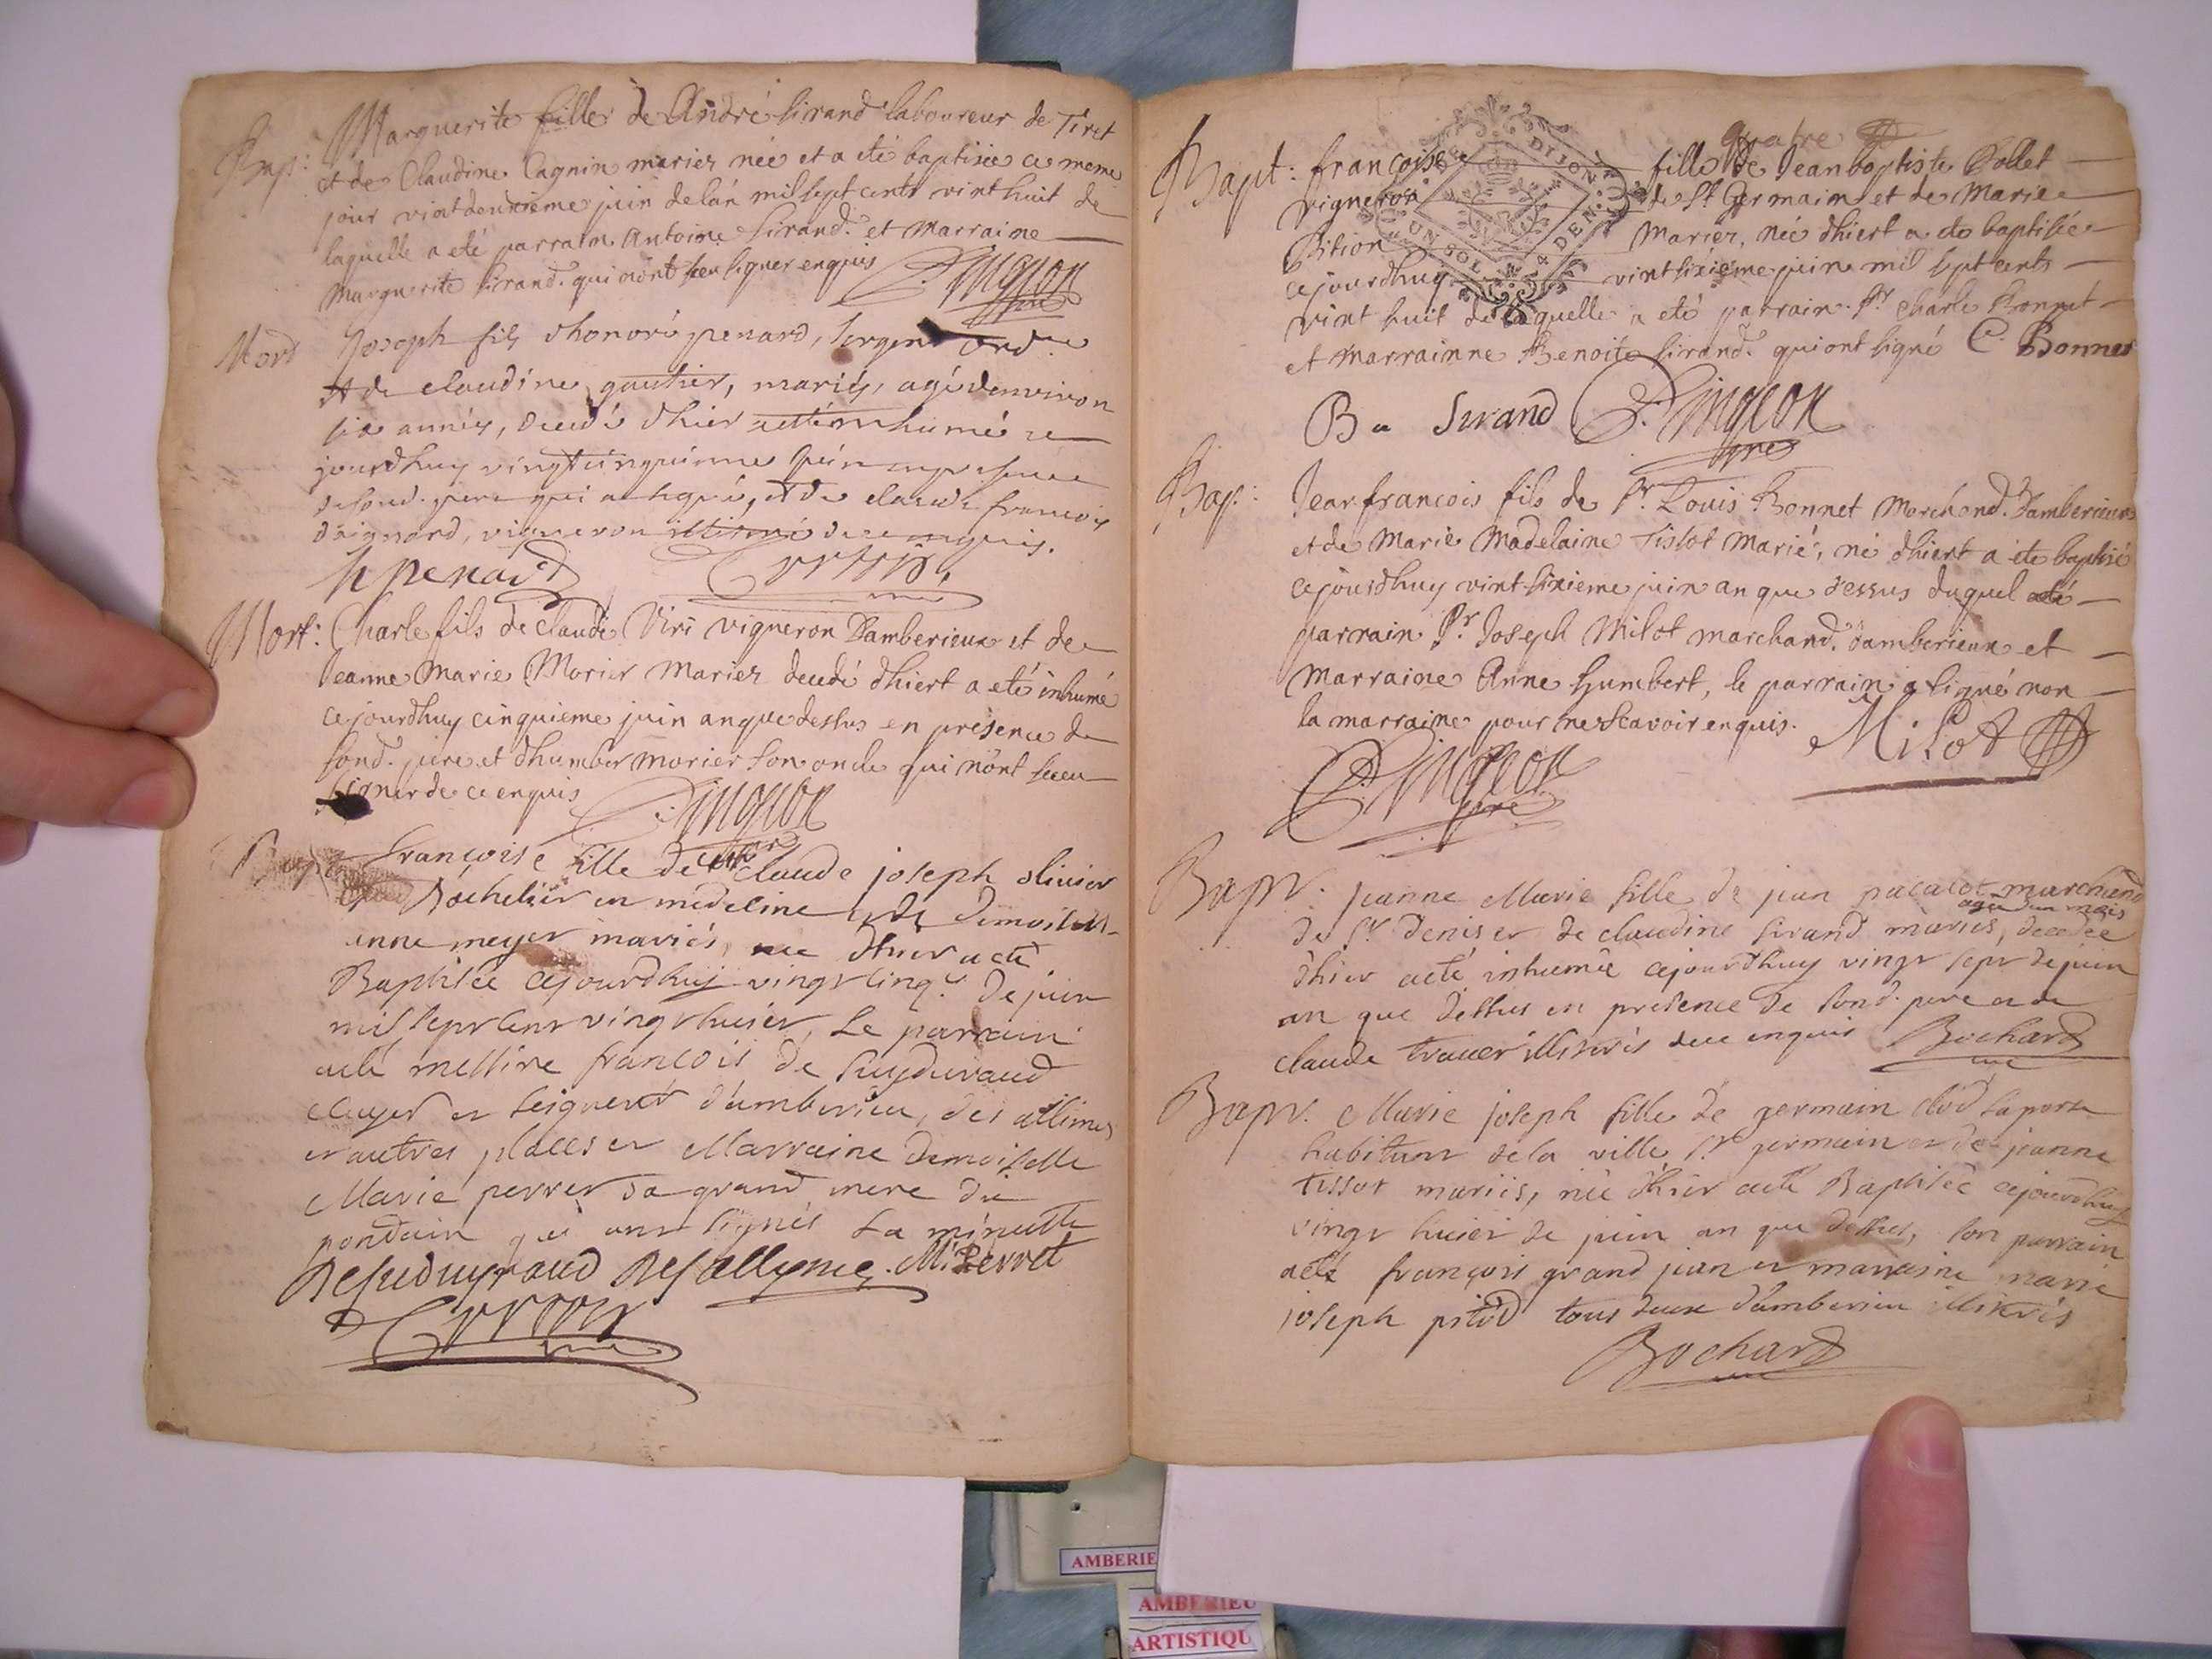 Bap: Marguerite fille de André Sirand laboureur de Tiret
et de Claudine Cagnin mariez née et a eté baptisée ce meme
jour vint deuxieme juin de lan mil sept cents vint huit de
laquelle a eté parrain Antoine Sirand. et Marraine
Marguerite Sirand. qui n'ont sceu signer enquis
Mort Joseph fils d'honoré penard, sergent
et de claudine gautier, mariés, agé denviron
six années, decedé d'hier a eté inhumé ce
jourdhuy vingtcinquieme juin en presence
de sond. pere qui a signé, et de claude francois
vigneron illitteré de ce enquis.
h penard
Mort: Charle fils de claude Viri vigneron Damberieux et de
Jeanne Marie Morier Mariez decedé dhiert a eté inhumé
cejourdhuy cinquieme juin an que dessus en presence de
sond. pere et dhumber morier son oncle qui n'ont sceu
signer de ce enquis
Bapt françoise fille de claude joseph olivier
Bachelier en medecine et de demoiselle
anne meyer mariés, née dhier a eté
Baptisée cejourdhuy vingt cinq. de juin
mil sept cent vingt huict, Le parrain
a eté messire francois de
ecuyer et seigneur d'amberieu, des allimes
et autres places et Marraine demoiselle
Marie perret sa grand mere du
pondain qui ont signés La minutte
Desallyme. M. Perret
quatre
Bapt: francoise fille de Jean baptiste Collet
vigneron de St Germain et de Marie
Bition Mariez, née dhiert a ete baptisée
cejourdhuy vint sixieme juin mil sept cents
vint huit de laquelle a eté parrain Sr Charle Bonnet
et Marrainne Benoite Sirand. qui ont signé C. Bonnet
DIJON
UN SOL 4 DEN.
B Sirand Pingeon
Bap: Jean francois fils de Sr. Louis Bonnet Marchand. Damberieux
et de Marie Madelaine Tissot Marié, né dhiert a ete baptisé
cejourdhuy vint sixieme juin an que dessus duquel a eté
parrain Sr. Joseph Milot marchand. damberieux et
Marraine Anne Humbert, le parrain a signé non
la marraine pour ne scavoir enquis. Milot
Pingeon
Bapt. jeanne Marie fille de jean pacalot marchand
agée d'un mois
de St denis et de claudine Sirand mariés, decedée
d'hier a eté inhumée cejourdhuy vingt sept de juin
an que dessus en presence de sond. pere et de
claude illiterés de ce enquis Bochard
Bapt. Marie joseph fille de germain
habitant de la ville St germain et de jeanne
tissot mariés, née d'hier a eté Baptisée cejourdhuy
vingt huict de juin an que dessus, son parrain
a eté françois grand jean et marraine marie
joseph pitod tous deux d'amberieu illiterés
Bochard
AMBERIE
AMBERIEU
ARTISTIQU